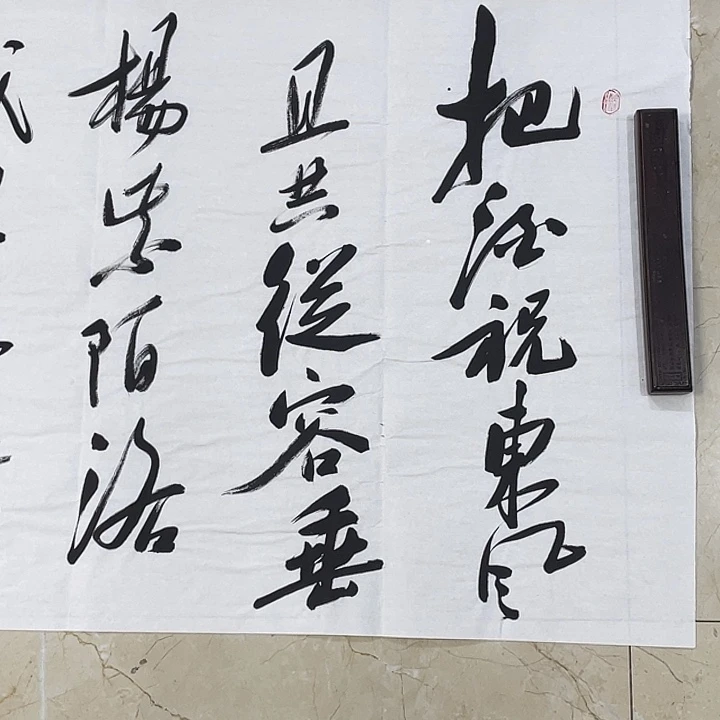 把酒祝東風
且共從容垂
楊紫陌洛